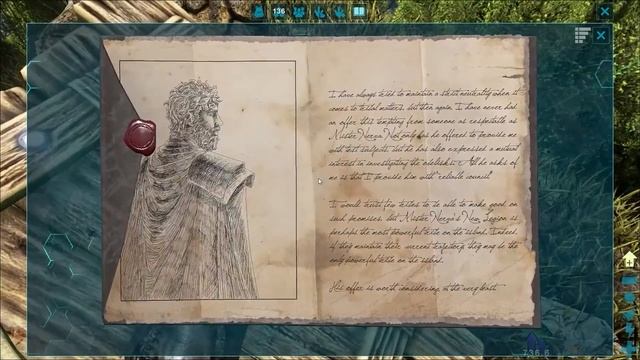 136
I have always tried to maintain a strict neutrality when it
comes to tribal matters, but then again, I have never had
an offer this tempting from someone as respectable as
Mister Nerva. Not only has he offered to provide me
with test subjects, but he has also expressed a mutual
interest in investigating the obelisks. All he asks of
me is that I provide him with "reliable counsel."
I would trust few tribes to be able to make good on
such promises, but Mister Nerva's New Legion is
perhaps the most powerful tribe on the island. Indeed,
if they maintain their current trajectory, they may be the
only powerful tribe on the island.
His offer is worth considering, at the very least.
736.6